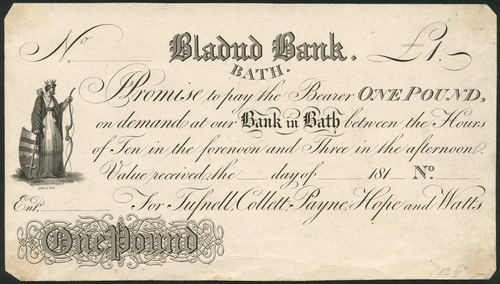 No Bladud Bank. £1.-
BATH.
Promise to pay the Bearer ONE POUND,
on demand at our Bank in Bath between the Hours
of Ten in the forenoon and Three in the afternoon
Value received, the day of 181 No.
Entd. For Tufnell, Collett, Payne, Hope and Watts
One Pound